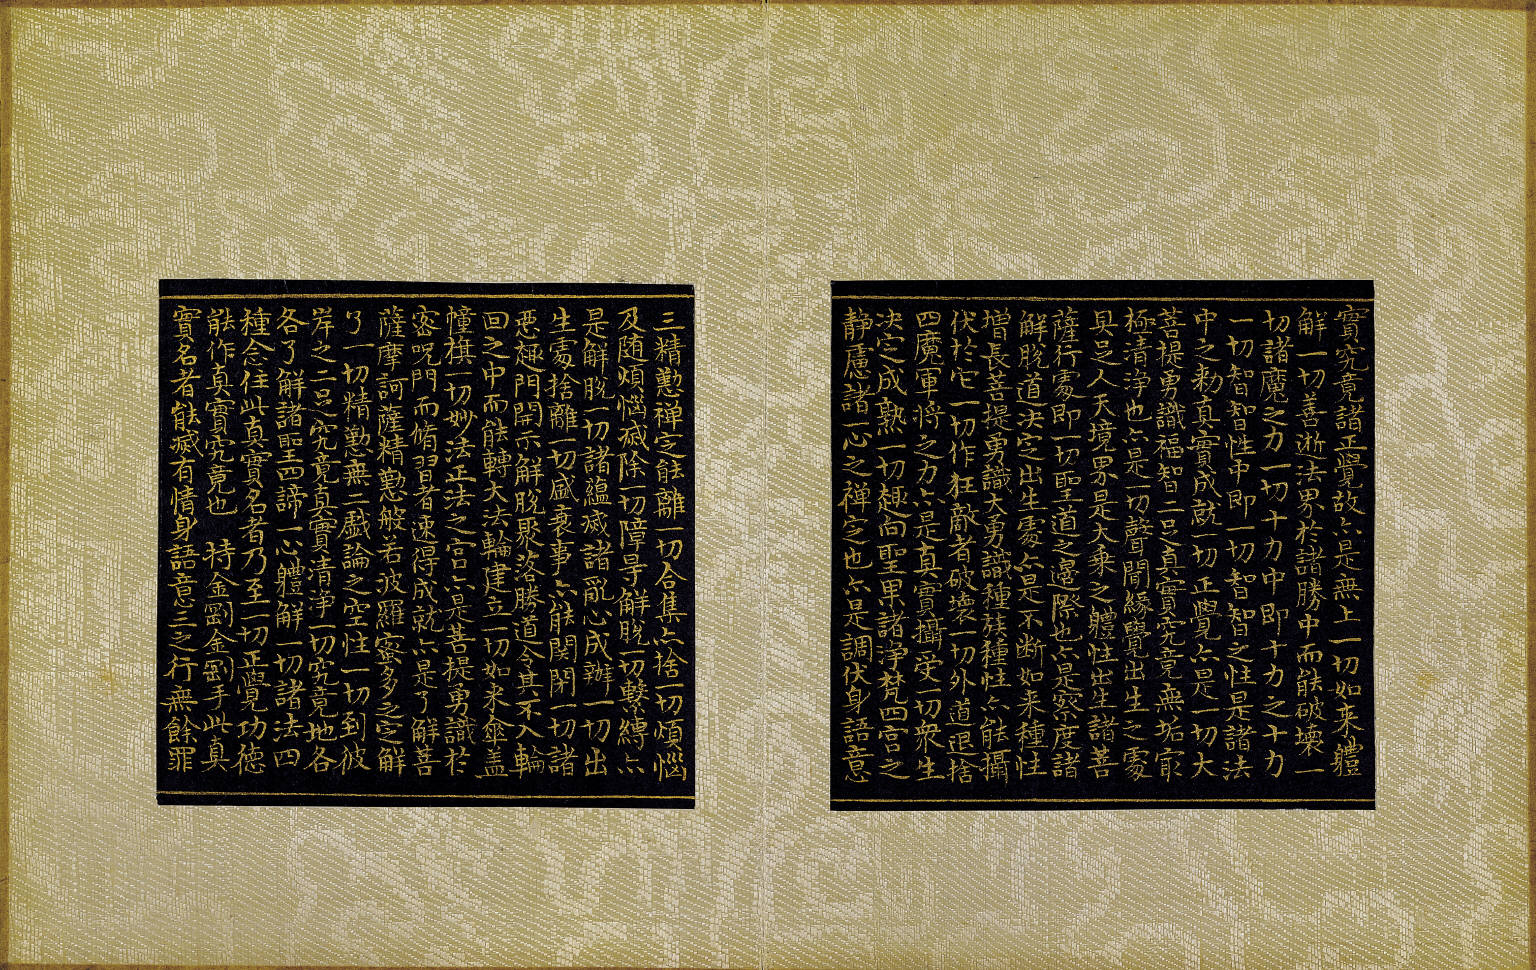 實究竟諸正覺故亦是無上一切如来體
解一切善逝法界於諸勝中而能破壞一
切諸魔之力一切十力中即十力之十力
一切智智性中即一切智智之性是諸法
中之勑真實成就一切正覺亦是一切大
菩提勇識福智二足真實究竟無垢㝡
極清淨也亦是一切聲聞緣覺出生之處
具足人天境界是大乗之體性出生諸菩
薩行處即一切聖道之邊際也亦是察度諸
解脫道决定出生處亦是不断如来種性
增長菩提勇識大勇識種族種性亦能攝
伏於它一切作狂敵者破壞一切外道退捨
四魔軍将之力亦是真實攝受一切衆生
决定成熟一切趣向聖果諸淨梵四宫之
静慮諸一心之禅定也亦是調伏身語意
三精懃禅定能離一切合集亦捨一切煩惱
及随煩惱滅除一切障㝵解脫一切繫縛亦
是解脫一切諸蘊滅諸亂心成辦一切出
生處捨離一切盛衰事亦能関閉一切諸
惡趣門開示解脫聚落勝道令其不入輪
回之中而能轉大法輪建立一切如来傘盖
幢旗一切妙法正法之宫亦是菩提勇識於
密呪門而脩習者速得成就亦是了解菩
薩摩訶薩精懃般若波羅蜜多之定解
了一切精懃無二戲論之空性一切到彼
岸之二足究竟真實清淨一切究竟地各
各了解諸聖四諦一心體解一切諸法四
種念住此真實名者乃至一切正覺功德
能作真實究竟也　持金剛金剛手此真
實名者能滅有情身語意三之行無餘罪